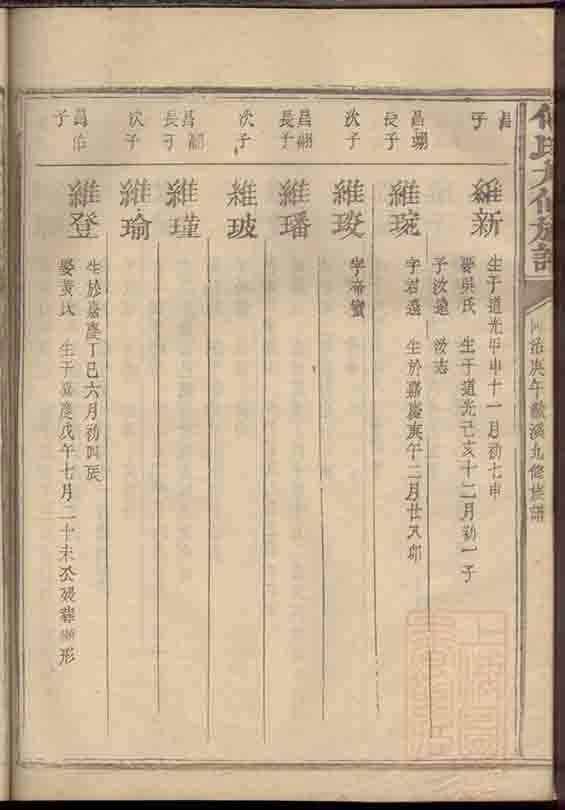 氏九修族譜
同治庚午 溪九修族譜
昌
子
維新
生于道光甲申十一月初七申
娶吳氏 生于道光己亥十二月初一子
子汝遠 汝志
昌翊
長子
維琬
字君遠 生於嘉慶庚午二月廿 卯
次子
維玫
字帝蜜
昌翊
長子
維璠
次子
維玻
昌翮
長子
維瑾
次子
維瑜
昌
子
維登
生於嘉慶丁巳六月初四辰
娶黃氏 生于嘉慶戊午七月二十未公歿葬 形